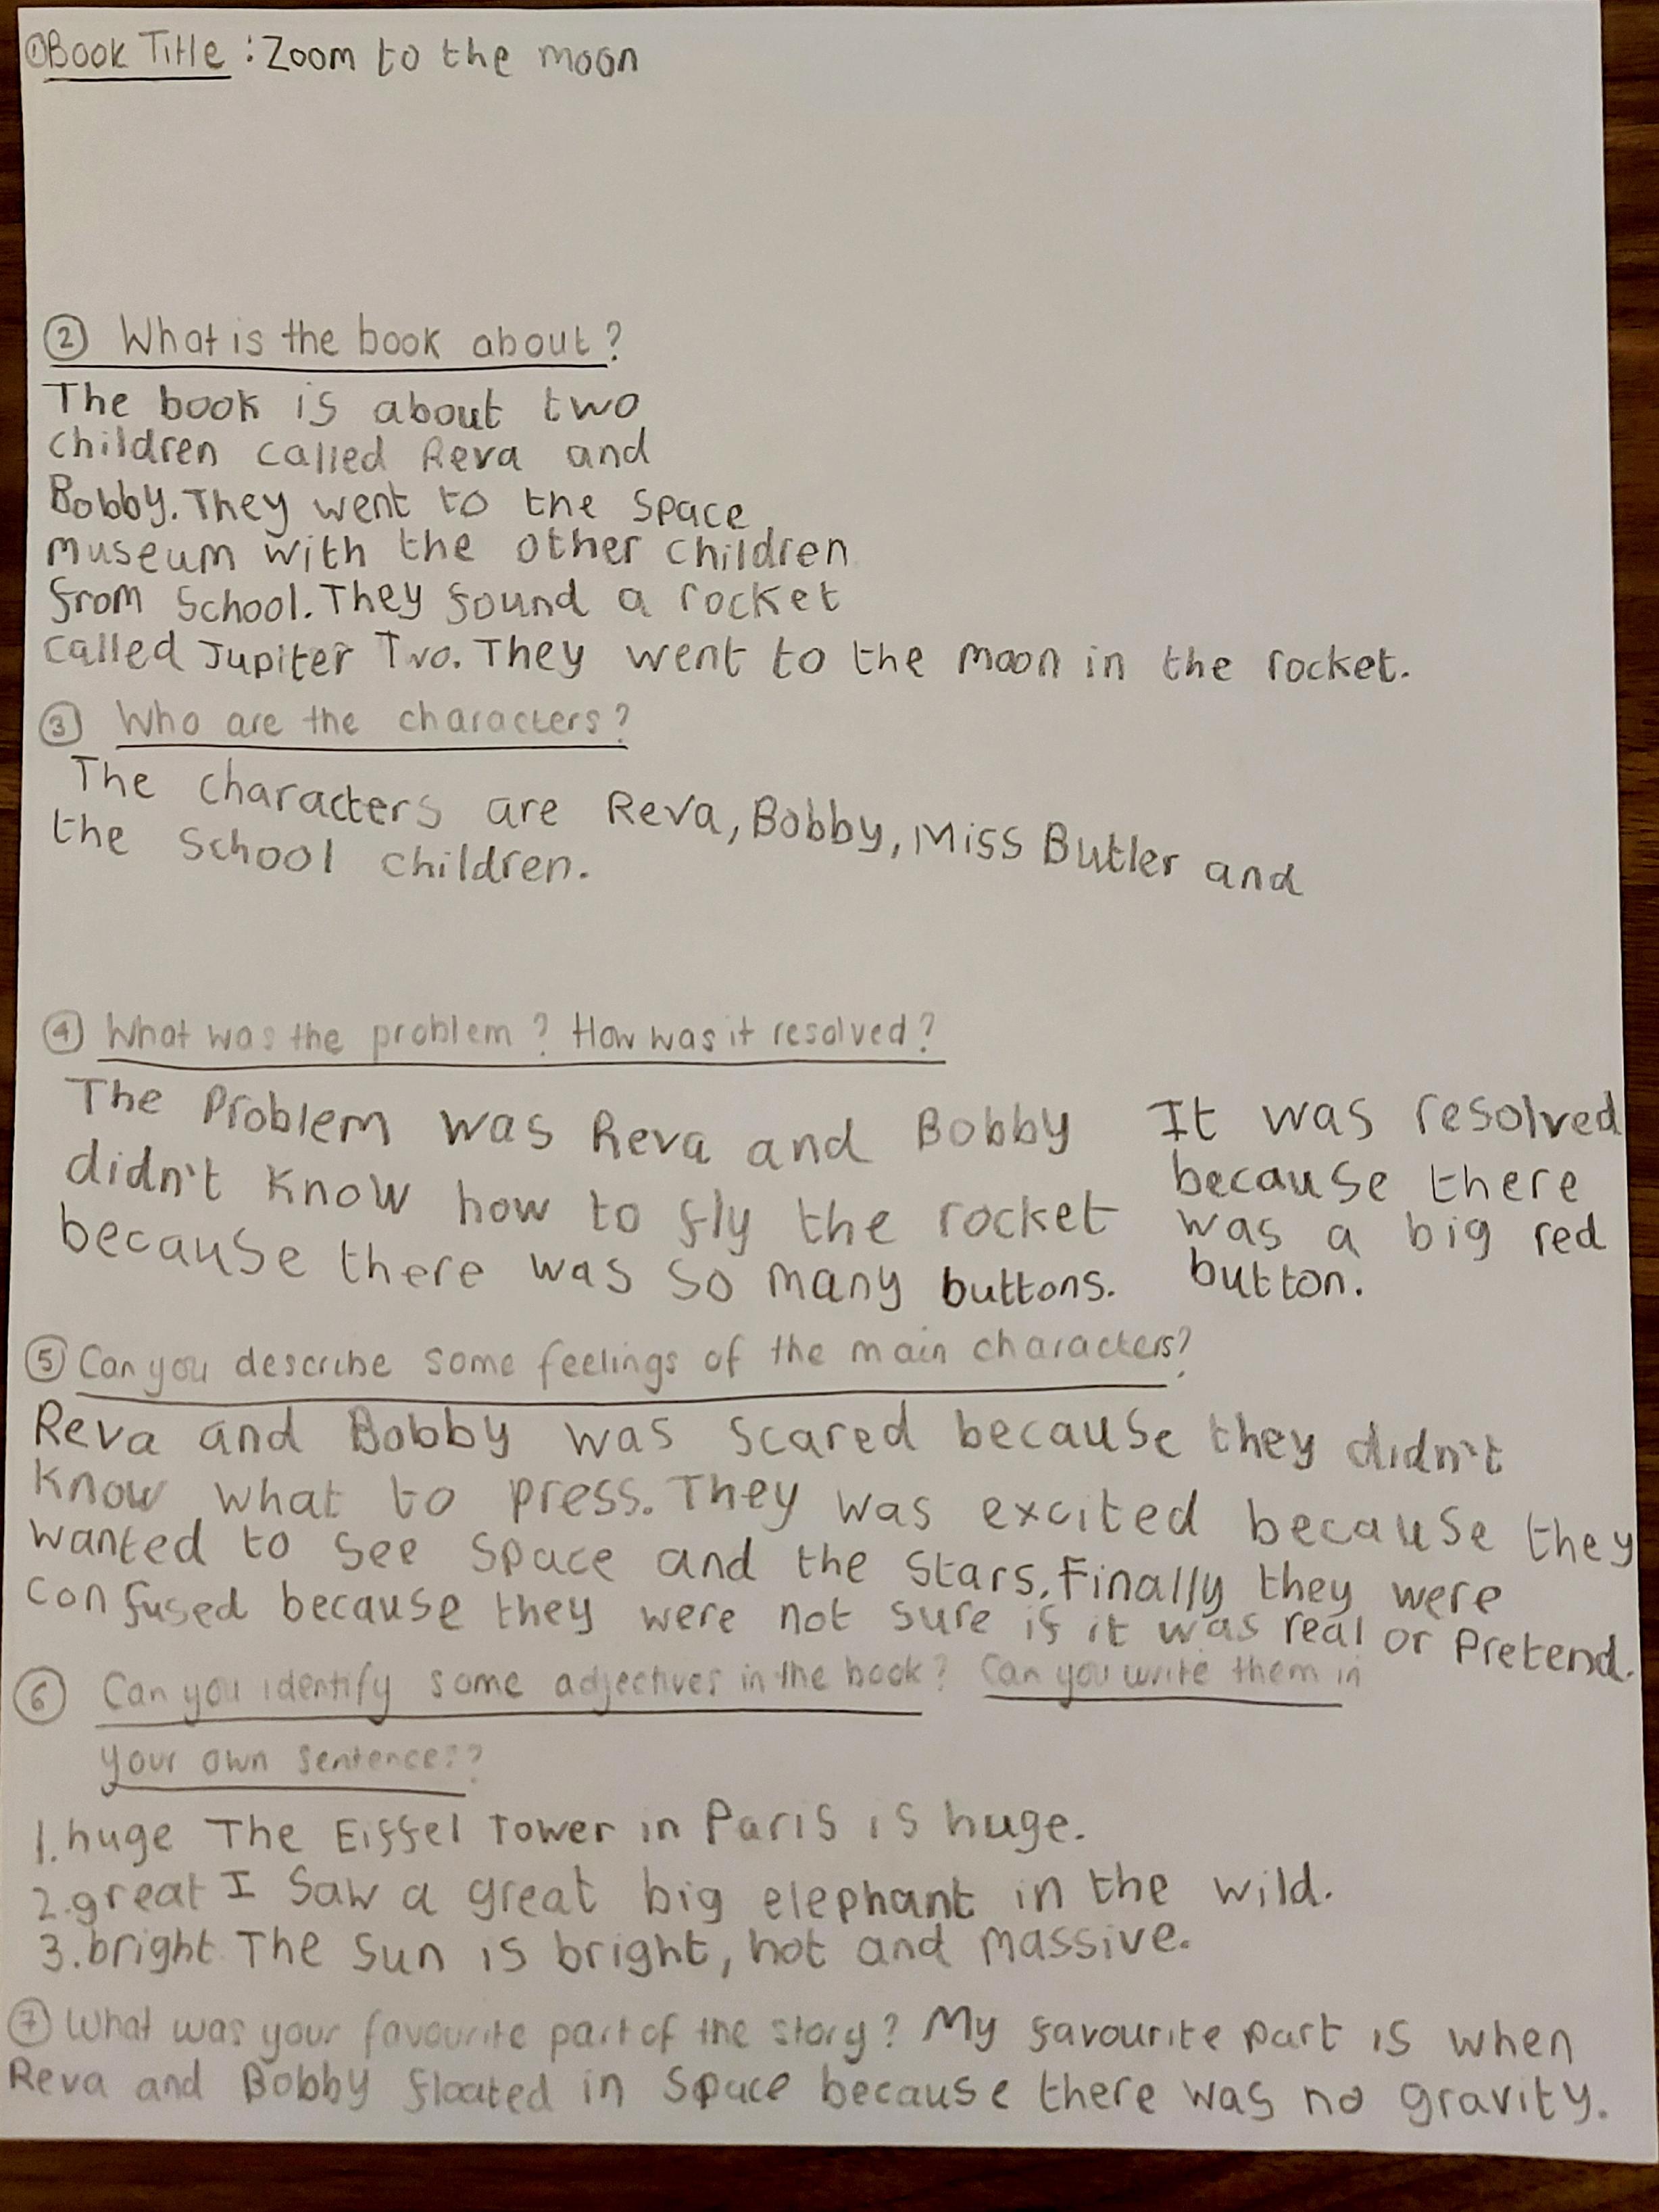 ① Book Title : Zoom to the moon
② What is the book about?
The book is about two
children called Reva and
Bobby. They went to the space
museum with the other children
from school. They found a rocket
called Jupiter Two. They went to the moon in the rocket.
③ Who are the characters?
The characters are Reva, Bobby, Miss Butler and
the school children.
④ What was the problem? How was it resolved?
The problem was Reva and Bobby
didn't know how to fly the rocket
because there was so many buttons.
It was resolved
because there
was a big red
button.
⑤ Can you describe some feelings of the main characters?
Reva and Bobby was scared because they didn't
know what to press. They was excited because they
wanted to see space and the stars. Finally they were
confused because they were not sure if it was real or pretend.
⑥ Can you identify some adjectives in the book? Can you write them in
your own sentences?
1. huge The Eiffel Tower in Paris is huge.
2. great I saw a great big elephant in the wild.
3. bright The sun is bright, hot and massive.
⑦ What was your favourite part of the story? My favourite part is when
Reva and Bobby floated in space because there was no gravity.